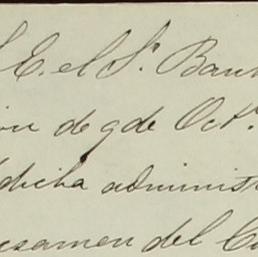 S. E. el Sr. Ban
ion de 9 de Oct.
dicha administ
examen del C